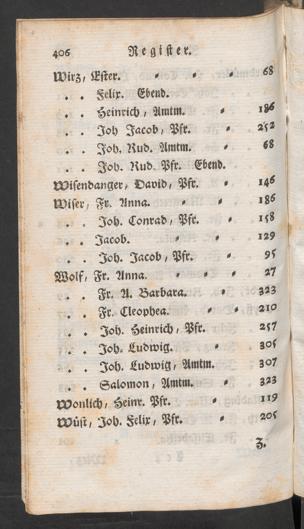 406 Register.
Wirz, Ester. 68
. . Felix. Ebend.
. . Heinrich, Amtm. 186
. . Joh Jacob, Pfr. 252
. . Joh. Rud. Amtm. 68
. . Joh. Rud. Pfr. Ebend.
Wisendanger, David, Pfr. 146
Wiser, Fr. Anna. 186
. . Joh. Conrad, Pfr. 158
. . Jacob. 129
. . Joh. Jacob, Pfr. 95
Wolf, Fr. Anna. 27
. . Fr. A. Barbara. 323
. . Fr. Cleophea. 210
. . Joh. Heinrich, Pfr. 257
. . Joh. Ludwig. 305
. . Joh. Ludwig, Amtm. 307
. . Salomon, Amtm. 323
Wonlich, Heinr. Pfr. 119
Wüst, Joh. Felix, Pfr. 205
Z.